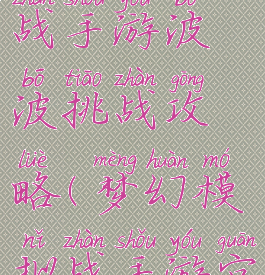 zhàn shǒu yóu bō
战手游波
bō tiāo zhàn gōng
波挑战攻
lüè mèng huàn mó
略(梦幻模
nǐ zhàn shǒu yóu guān
拟战手游官